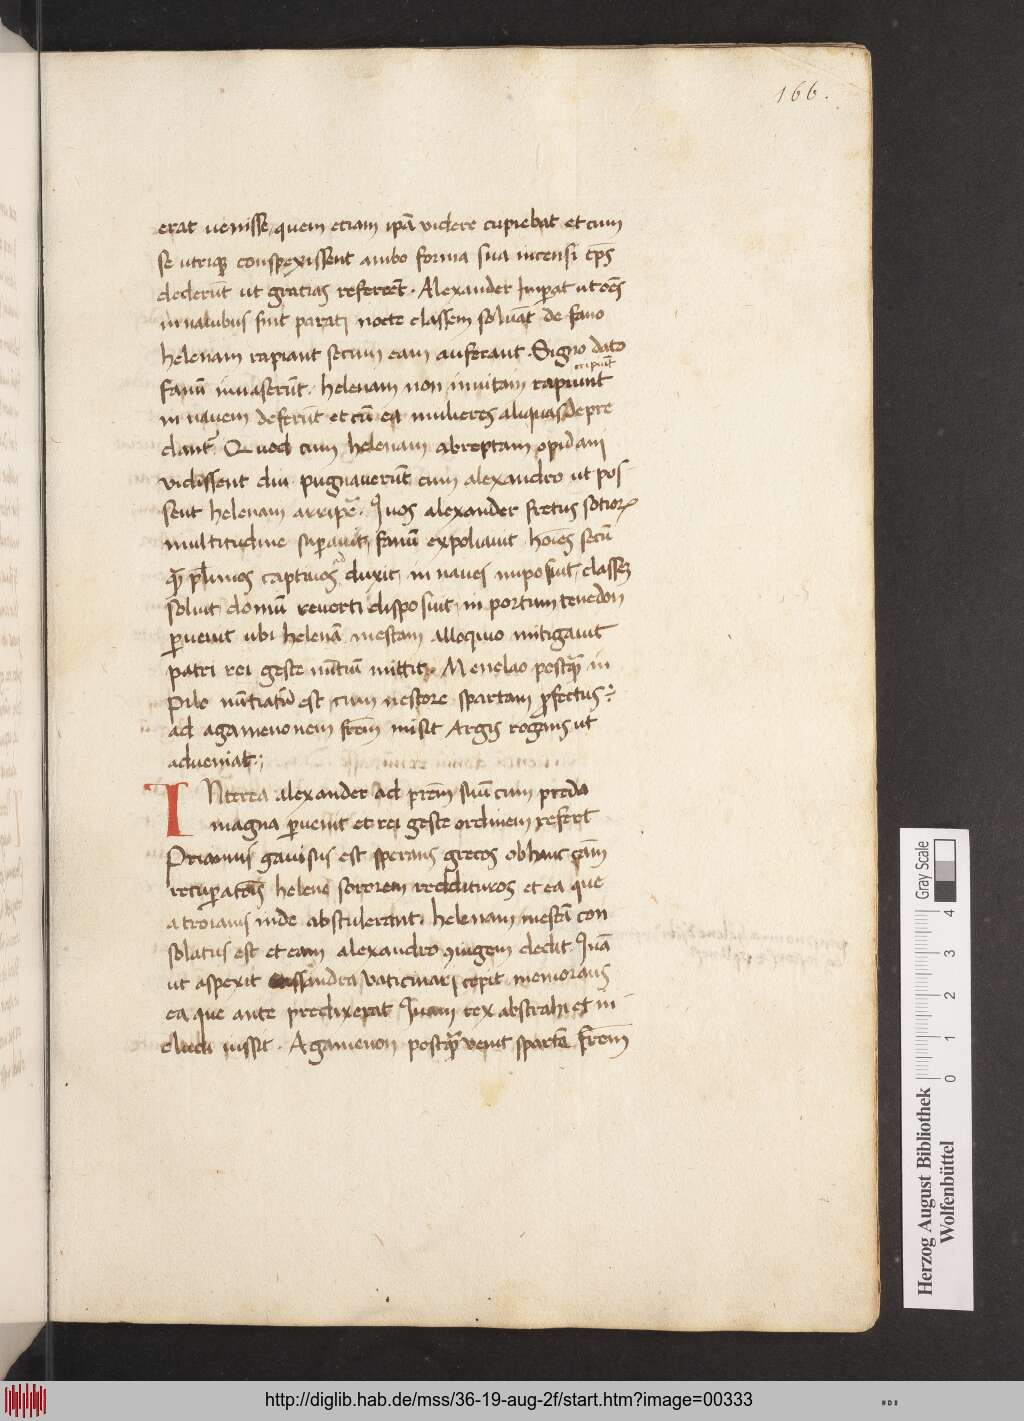 166.
erat uenisse, quem etiam ipā videre cupiebat et cum
se utrique conspexissent ambo forma sua incensi tp̄s
dederūt ut gratias referrēt. Alexander Imꝑat ut oēs
in nauibus sint parati nocte classem soluāt de fano
helenam rapiant secum eam auferant. Signo dato
fanū inuaserūt. helenam non inuitam rapiunt
in nauem deferūt et cū ea mulieres aliquas depre
dant᷑ Quod cum helenam abreptam opidani
vidissent diu pugnauerūt cum alexandro ut pos
sent helenam arripe᷑. Quos alexander fretus sotioꝝ
multitudine suꝑauit, fanū expoliauit hoīes secū
ꝙ̄ pl̄imos captiuos duxit, in nauej imposuit, classez
soluit, domū reuerti disposuit, in portum tenedon
ꝑuenit ubi helenā mestam alloquio mitigauit
patri rei geste nūtiū mittit. Menelao postꝙ̄ in
Pilo nūtiatū est cum nestore spartam ꝓfectus:
ad agamenonem frēm misit Argis rogans ut
adueniat.;
INterea alexander ad prēm suū cum preda
magna ꝑuenit et rei geste ordinem refert
Priamus gauisus est sperans grecos ob hanc cām
recuꝑatōis helene sororem reddituros et ea que
a troianis inde abstulerant. helenam mestā con
solatus est et eam alexandro ꝯiugem dedit Quā
ut aspexit cassandra, vaticinari cepit memorans
ea que ante predixerat Quam rex abstrahi et in
cludi iussit. Agamenon postꝙ̄ venit spartē frēm
Gray Scale
4
3
2
1
0
Herzog August Bibliothek
Wolfenbüttel
http://diglib.hab.de/mss/36-19-aug-2f/start.htm?image=00333